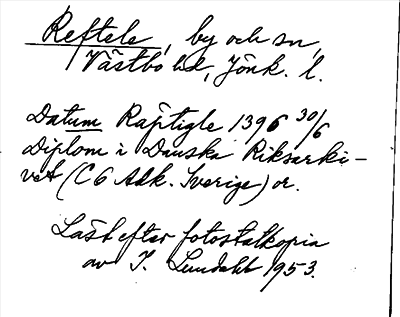 Reftele, by och sn,
Västbo hd, Jönk. l.
Datum Räptigle 1396 30/6
Diplom i Danska Riksarki-
vet (C6 Adk. Sverige) or.
Läst efter fotostatkopia
av I. Lundahl 1953.